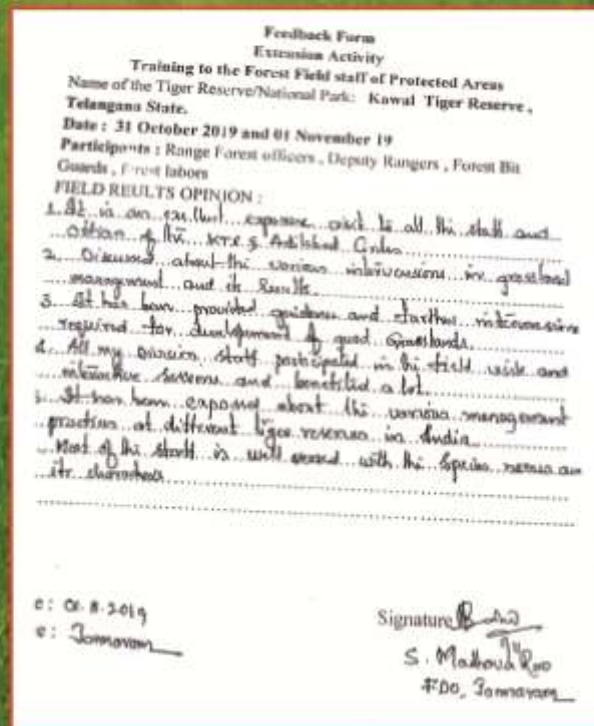 Feedback Form
Extension Activity
Training to the Forest Field staff of Protected Areas
Name of the Tiger Reserve/National Park: Kawal Tiger Reserve,
Telangana State.
Date : 31 October 2019 and 01 November 19
Participants : Range Forest officers , Deputy Rangers , Forest Bit
Guards , Forest labors
FIELD REULTS OPINION :
1. It is an excellent exposure visit to all the staff and
of the KTR & Adilabad Circles
2. Discussed about the various interventions in grassland
management and its Results.
3. It has been provided guidance and further interventions
required for development of good Grasslands.
4. All my Division staff participated in the field visit and
interactive sessions and benefitted a lot.
It has been exposed about the various management
practices at different tiger reserves in India
Most of the staff is well versed with the species names an
its characters
e: 01.8.2019
e: Jannaram
Signature
S. Madhava Rao
FDO, Jannaram